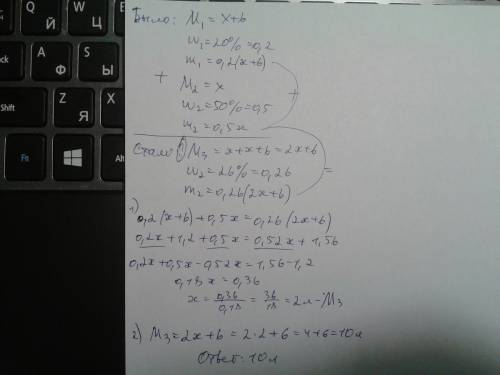 Было: M₁ = x+6
w₁=20%=0,2
m₁=0,2(x+6)
+ M₂ = x
w₂=50%=0,5
m₂=0,5x
+
Стало: M₃ = x+x+6 = 2x+6
w₂=26%=0,26
m₂=0,26(2x+6)
=
1)
0,2(x+6)+0,5x=0,26(2x+6)
0,2x+1,2+0,5x=0,52x+1,56
0,2x+0,5x-0,52x=1,56-1,2
0,18x=0,36
x=0,36/0,18=36/18=2л-M₃
2) M₃=2x+6=2·2+6=4+6=10л
Ответ: 10л
Й
Ц
Q
A
Ф
S
Ы
Shift
Z
Я
X
Fn
Alt